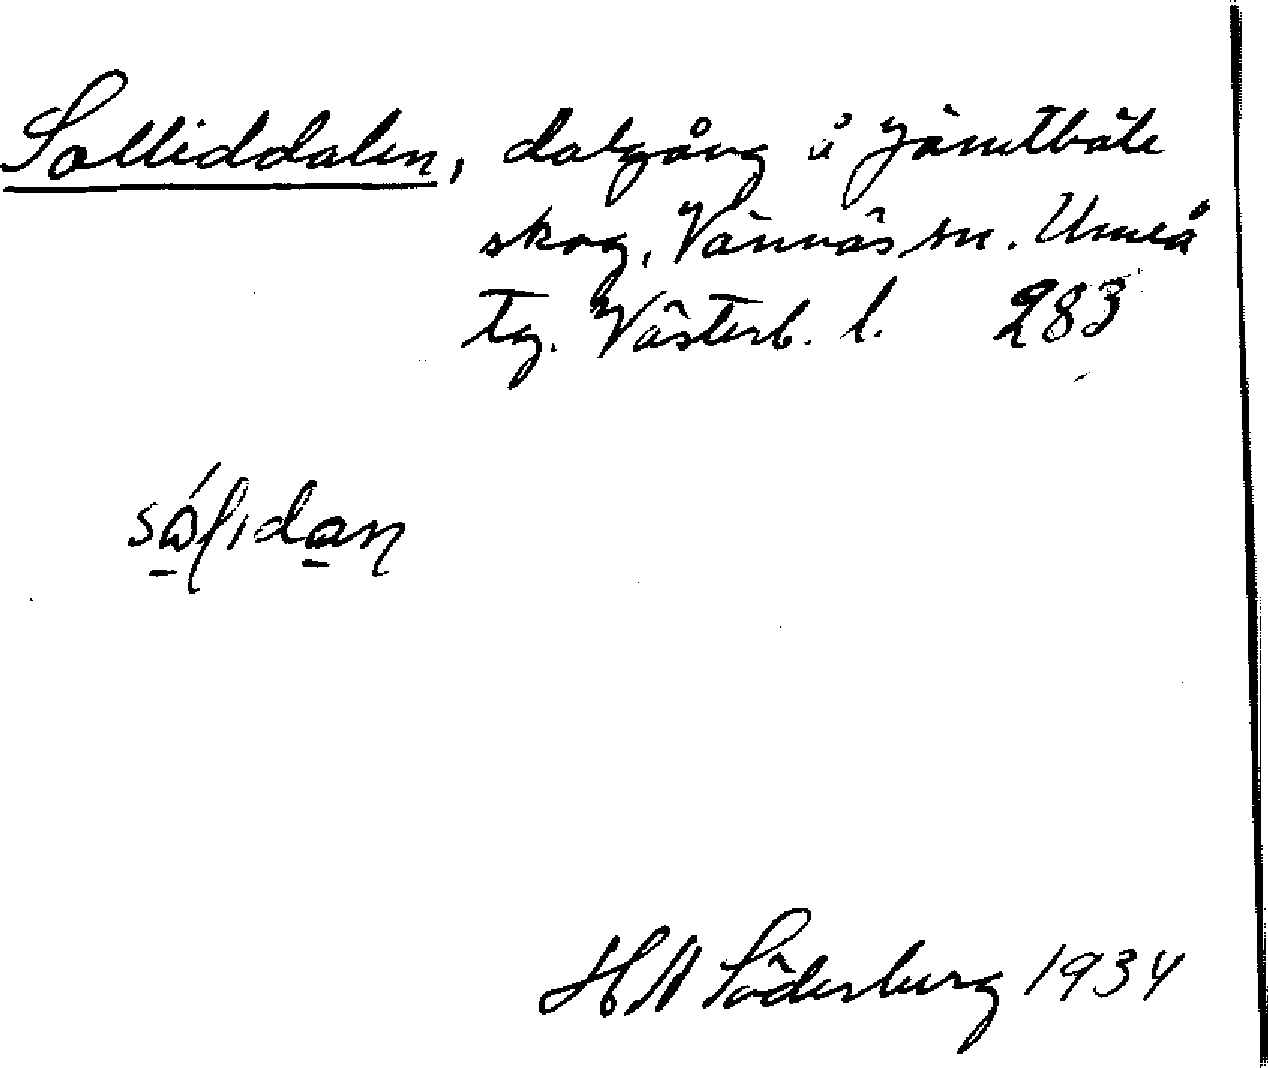 Solliddalen, dalgång å Jämtböle
skog, Vännäs sn. Umeå
tg. Västerb. l. 283
H N Söderberg 1934